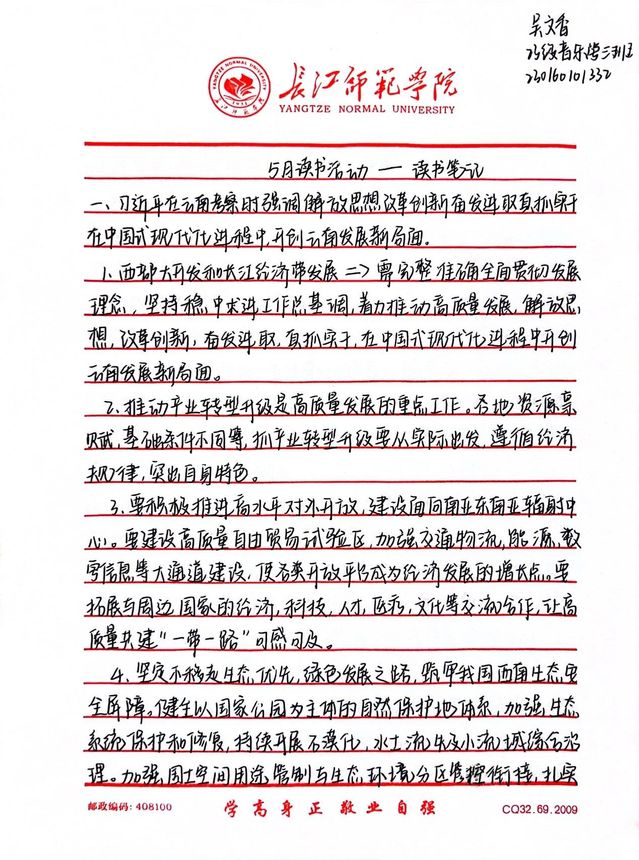 吴文香
23级音乐学三班
230160101332
YANGTZE NORMAL UNIVERSITY
1931
长江师范学院
长江師範學院
YANGTZE NORMAL UNIVERSITY
5月读书活动——读书笔记
一、习近平在云南考察时强调解放思想改革创新奋发进取真抓实干
在中国式现代化进程中开创云南发展新局面。
1.西部大开发和长江经济带发展=>需完整准确全面贯彻发展
理念，坚持稳中求进工作总基调，着力推动高质量发展，解放思
想，改革创新，奋发进取，真抓实干，在中国式现代化进程中开创
云南发展新局面。
2.推动产业转型升级是高质量发展的重点工作。各地资源禀
赋，基础条件不同等，抓产业转型升级要从实际出发，遵循经济
规律，突出自身特色。
3.要积极推进高水平对外开放，建设面向南亚东南亚辐射中
心。要建设高质量自由贸易试验区，加强交通物流，能源，数
字信息等大通道建设，使各类开放平台成为经济发展的增长点。要
拓展与周边国家的经济，科技，人才，医疗，文化等交流合作，让高
质量共建“一带一路”可感可及。
4.坚定不移走生态优先，绿色发展之路，筑牢我国西南生态安
全屏障。健全以国家公园为主体的自然保护地体系，加强生态
系统保护和修复，持续开展石漠化，水土流失及小流域综合治
理。加强国土空间用途管制与生态环境分区管控衔接，扎实
邮政编码：408100
学高身正 敬业自强
CQ32.69.2009